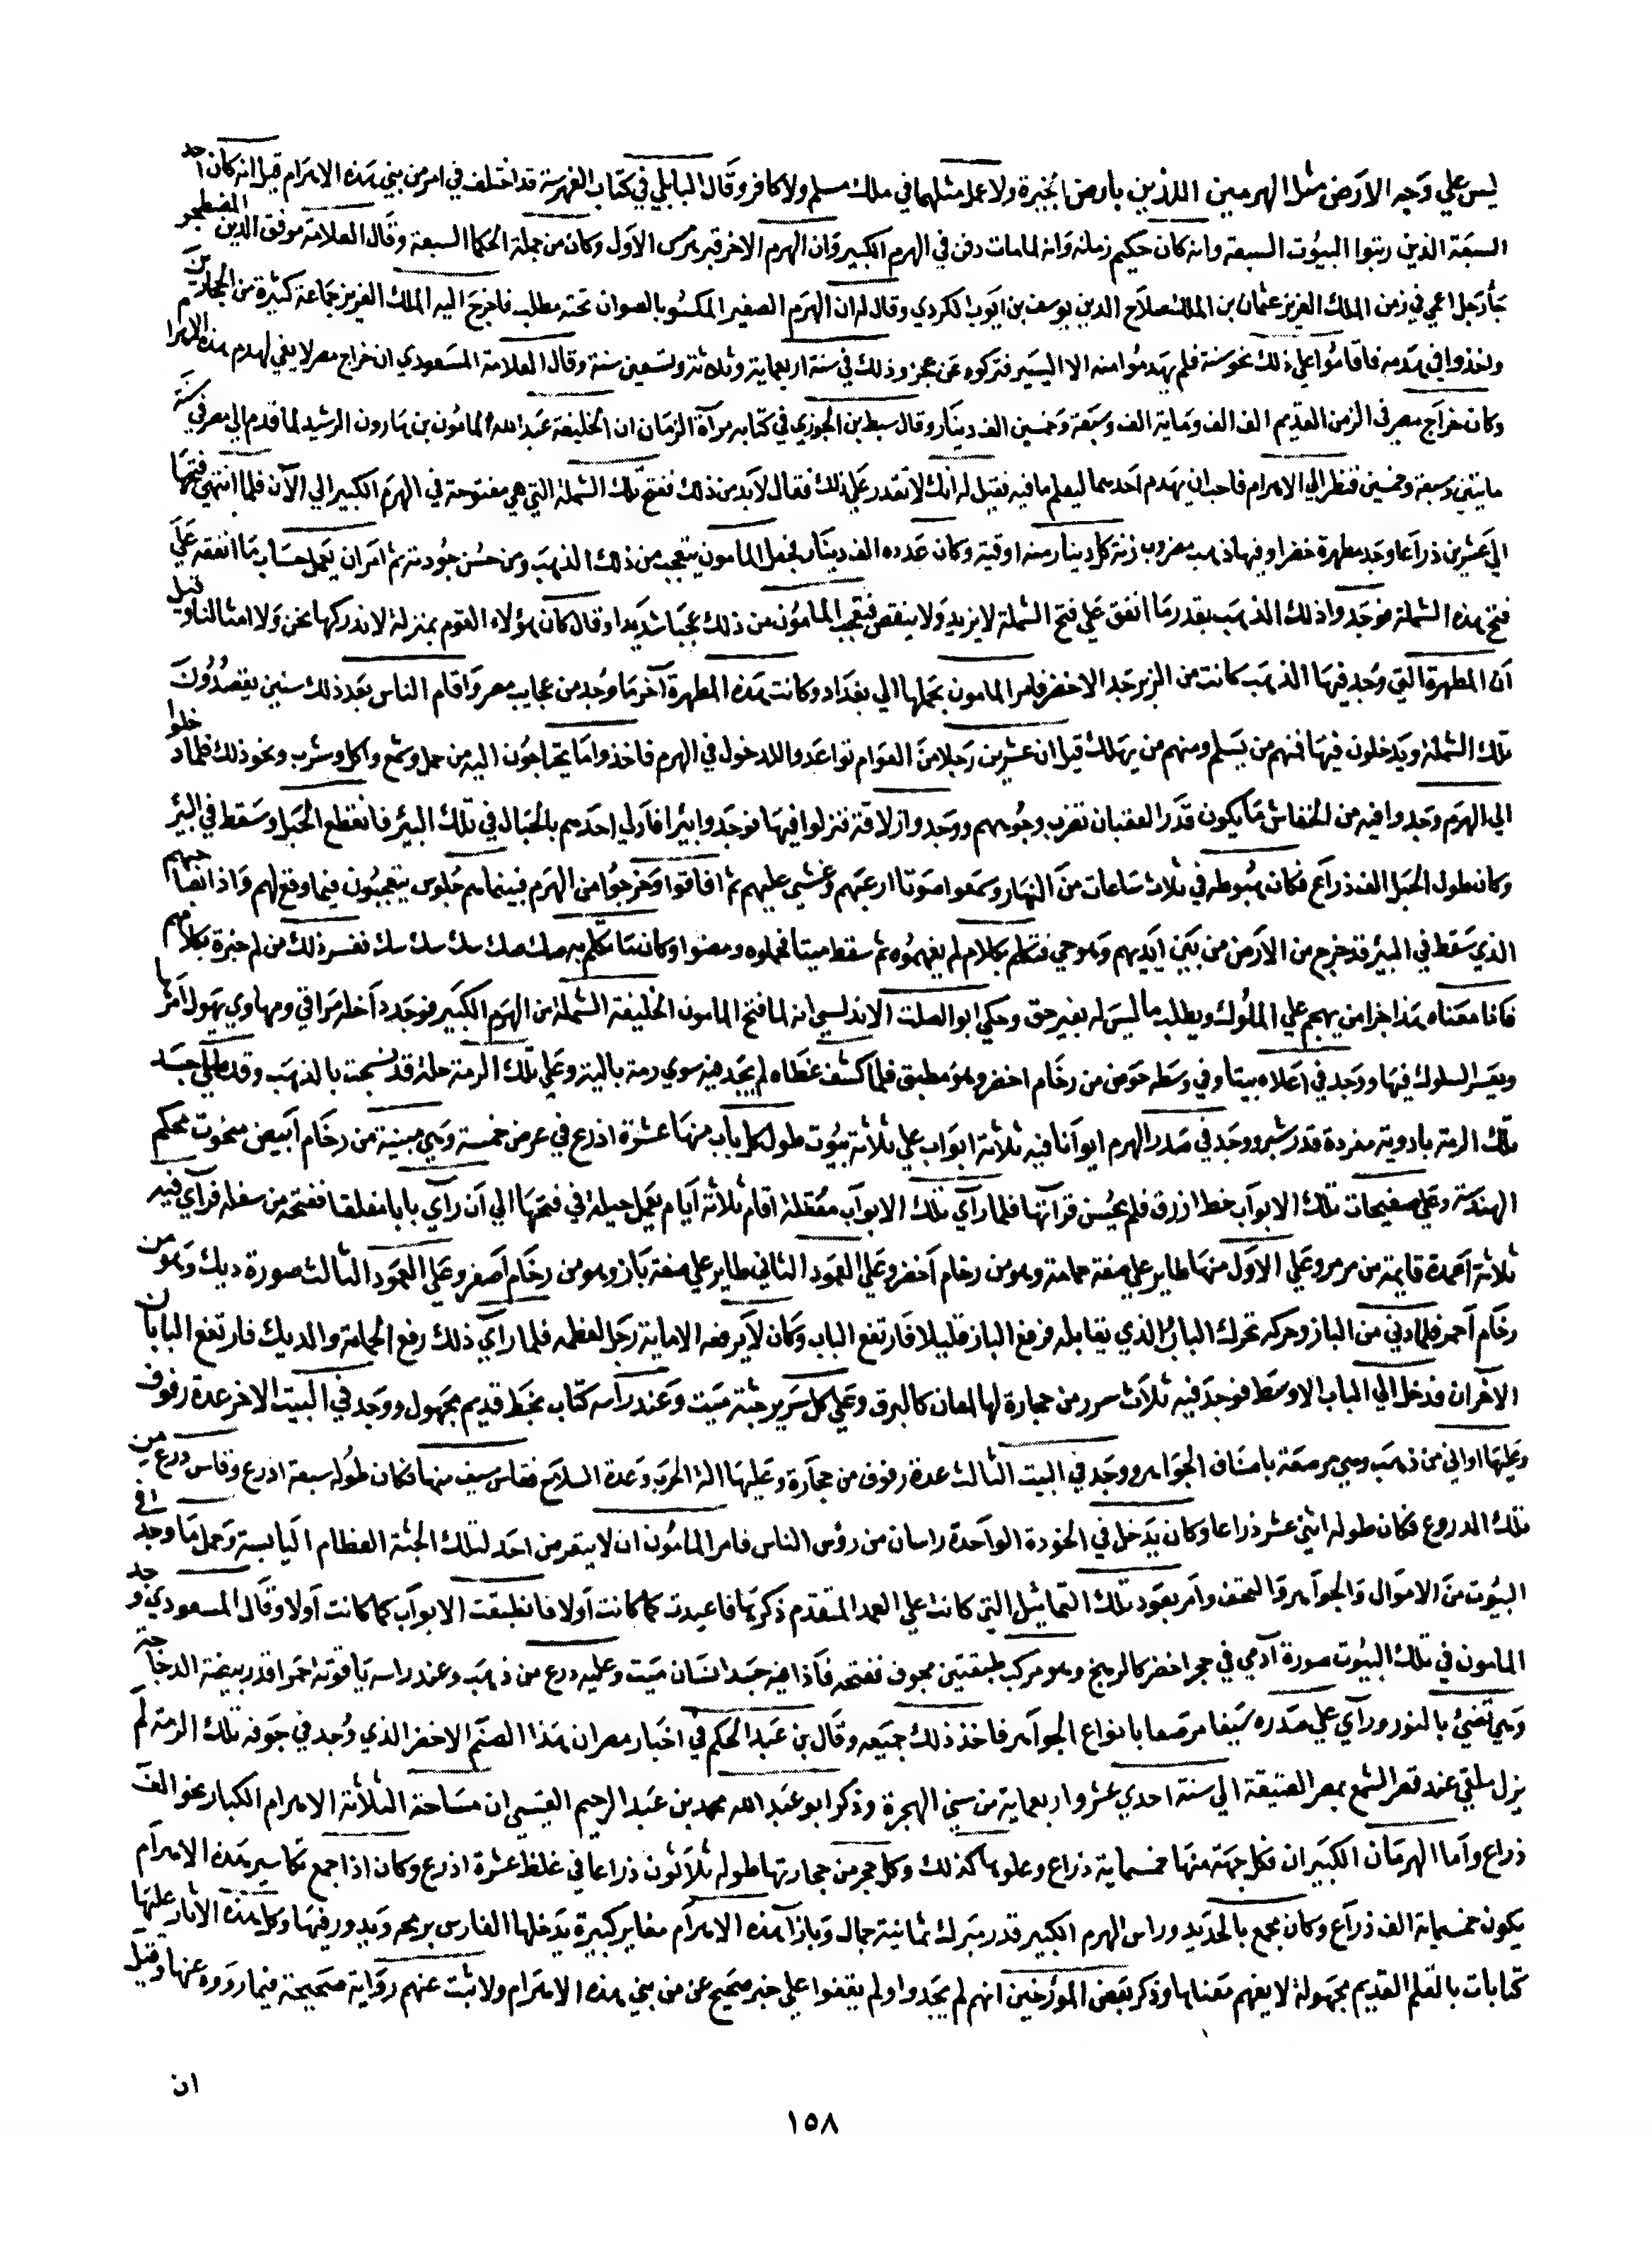 ليس علي وجه الارض مثل الهرمين اللذين بارض الجيزة ولا عمل مثلهما في ملك مسلم ولا كافر وقال البابلي في كتاب الفهرسة قد اختلف في امر من بني هذه الاهرام قيل انه كان احد
السبعة الذين رتبوا البيوت السبعة وانه كان حكيم زمانه وانه لما مات دفن في الهرم الكبير وان الهرم الاخر قبر هرمس الاول وكان من جملة الحكما السبعة وقال العلامة موفق الدين
جا رجل اعجمي في زمن الملك العزيز عثمان بن الملك صلاح الدين يوسف بن ايوب الكردي وقال له ان الهرم الصغير المكسو بالصوان تحته مطلب فاخرج اليه الملك العزيز جماعة كثيرة من الحجارين
واخذوا في هدمه فاقاموا علي ذلك نحو سنة فلم يهدموا منه الا اليسير فتركوه عن عجز وذلك في سنة اربعماية وثلاثة وتسعين سنة وقال العلامة المسعودي ان خراج مصر لا يفي لهدم هذه الاهرام
وكان خراج مصر في الزمن القديم الف الف وماية الف وسبعة وخمسين الف دينار وقال سبط بن الجوزي في كتابه مرآة الزمان ان الخليفة عبد الله المامون بن هارون الرشيد لما قدم الي مصر في سنة
مايتين وسبعة وخمسين فنظر الي الاهرام فاحب ان يهدم احدهما ليعلم ما فيه فقيل له انك لا تقدر علي ذلك فقال لا بد من ذلك ففتح تلك الثملة التي هي مفتوحة في الهرم الكبير الي الآن فلما انتهي فتحها
الي عشرين ذراعا وجد مطهرة خضرا وفيها ذهب مضروب زنة كل دينار منه اوقية وكان عدده الف دينار فجعل المامون يتعجب من ذلك الذهب ومن حسن جودته ثم امر ان يعمل حساب ما انفقه علي
فتح هذه الثملة فوجدوا ذلك الذهب بقدر ما انفق علي فتح الثملة لا يزيد ولا ينقص فتعجب المامون من ذلك عجبا شديدا وقال كان هؤلاء القوم بمنزلة لا ندركها نحن ولا امثالنا وقيل
ان المطهرة التي وجد فيها الذهب كانت من الزبرجد الاخضر فامر المامون بحملها الي بغداد وكانت هذه المطهرة آخر ما وجد من عجايب مصر واقام الناس بعد ذلك سنين يقصدون
تلك الثملة ويدخلون فيها فمنهم من يسلم ومنهم من يهلك قيل ان عشرين رجلا من العوام تواعدوا للدخول في الهرم فاخذوا ما يحتاجون اليه من حمل وشمع واكل وشرب ونحو ذلك فلما دخلوا
الي الهرم وجدوا فيه من الخفاش ما يكون قدر العقبان تضرب وجوههم ووجدوا زلاقة فنزلوا فيها فوجدوا بئرا فادلي احدهم بالحبال في تلك البئر فانقطع الحبل وسقط في البئر
وكان طول الحبل الف ذراع فكان هبوطه في ثلاث ساعات من النهار وسمعوا صوتا ارعبهم وغشي عليهم ثم افاقوا وخرجوا من الهرم فبينما هم جلوس يتعجبون فيما وقع لهم واذا بصاحبهم
الذي سقط في البئر قد خرج من الارض من بين ايديهم وهو حي فتكلم بكلام لم يفهموه ثم سقط ميتا فحملوه ومضوا وكان مما تكلم به صك صك سك سك سك ففسر ذلك من له خبرة بكلامهم
فكان معناه هذا جزا من يهجم علي الملوك ويطلب ما ليس له بغير حق وحكي ابو الصلت الاندلسي انه لما فتح المامون الخليفة الثملة من الهرم الكبير فوجد داخله مراقي ومهاوي يهول امرها
ويعسر السلوك فيها ووجد في اعلاه بيتا وفي وسطه حوض من رخام اخضر وهو مطبق فلما كشف غطاه لم يجد فيه سوي رمة بالية وعلي تلك الرمة حلة قد نسجت بالذهب وقد طلي جسد
تلك الرمة بادوية مفردة قدر شبر ووجد في صدر الهرم ايوانا فيه ثلاثة ابواب علي ثلاثة بيوت طول كل باب منها عشرة اذرع في عرض خمسة وهي مبنية من رخام ابيض منحوت محكم
الهندسة وعلي صفيحات تلك الابواب خط ازرق فلم يحسن قرآتها فلما رآي تلك الابواب مقفلة اقام ثلاثة ايام يعمل حيلة في فتحها الي ان رآي بابا مغلقا ففتحه من سفله فرآي فيه
ثلاثة اعمدة قايمة من مرمر وعلي الاول منها طاير علي صفة حمامة وهو من رخام اخضر وعلي العمود الثاني طاير علي صفة باز وهو من رخام اصفر وعلي العمود الثالث صورة ديك وهو من
رخام احمر فلما دني من الباز وحركه تحرك الباب الذي يقابله فرفع الباز قليلا فارتفع الباب وكان لا يرفعه الا ماية رجل لعظمه فلما راي ذلك رفع الحمامة والديك فارتفع البابان
الآخران فدخل الي الباب الاوسط فوجد فيه ثلاث سرر من حجارة لها لمعان كالبرق وعلي كل سرير جثة ميت وعند راسه كتاب بخط قديم مجهول ووجد في البيت الاخر عدة رفوف
وعليها اواني من ذهب وهي مرصعة باصناف الجواهر ووجد في البيت الثالث عدة رفوف من حجارة وعليها الة الحرب وعدة السلاح فقاس سيف منها فكان طوله سبعة اذرع وقاس درع من
تلك الدروع فكان طوله اثني عشر ذراعا وكان يدخل في الخودة الواحدة راسان من رؤس الناس فامر المامون ان لا يتعرض احد لتلك الجثة العظام اليابسة وحمل ما وجد في
البيوت من الاموال والجواهر والتحف وامر بعود تلك التماثيل التي كانت علي العمد المتقدم ذكرها فاعيدت كما كانت اولا فانطبقت الابواب كما كانت اولا وقال المسعودي وجد
المامون في تلك البيوت صورة آدمي في حجر اخضر كالدهنج وهو مركب طبقتين مجوف ففتحه فاذا فيه جسد انسان ميت وعليه درع من ذهب وعند راسه ياقوته احمرا قدر بيضة الدجاجة
وهي تضئ بالنور ورآي علي صدره سيفا مرصعا بانواع الجواهر فاخذ ذلك جميعه وقال بن عبد الحكم في اخبار مصر ان هذا الصنم الاخضر الذي وجد في جوفه تلك الرمة لم
يزل ملقي عند قصر الشمع بمصر العتيقة الي سنة احدي عشر واربعماية من سني الهجرة وذكر ابو عبد الله محمد بن عبد الرحيم القيسي ان مساحة الثلاثة الاهرام الكبار نحو الف
ذراع واما الهرمان الكبيران فكل جهة منها خمسماية ذراع وعلوها كذلك وكل حجر من حجارتها طوله ثلاثون ذراعا في غلظ عشرة اذرع وكان اذا جمع تكاسير هذه الاهرام
يكون خمسماية الف ذراع وكان مجمع بالحديد وراس الهرم الكبير قدر مبرك ثمانية جمال وبازآ هذه الاهرام مغاير كبيرة يدخلها الفارس برمحه ويدور فيها وكل هذه الاثار عليها
كتابات بالقلم القديم مجهولة لا يفهم معناها وذكر بعض المؤرخين انهم لم يجدوا ولم يقفوا علي خبر صحيح عن من بني هذه الاهرام ولا ثبت عنهم رواية صحيحة فيما رووه عنها وقيل
ان
١٥٨